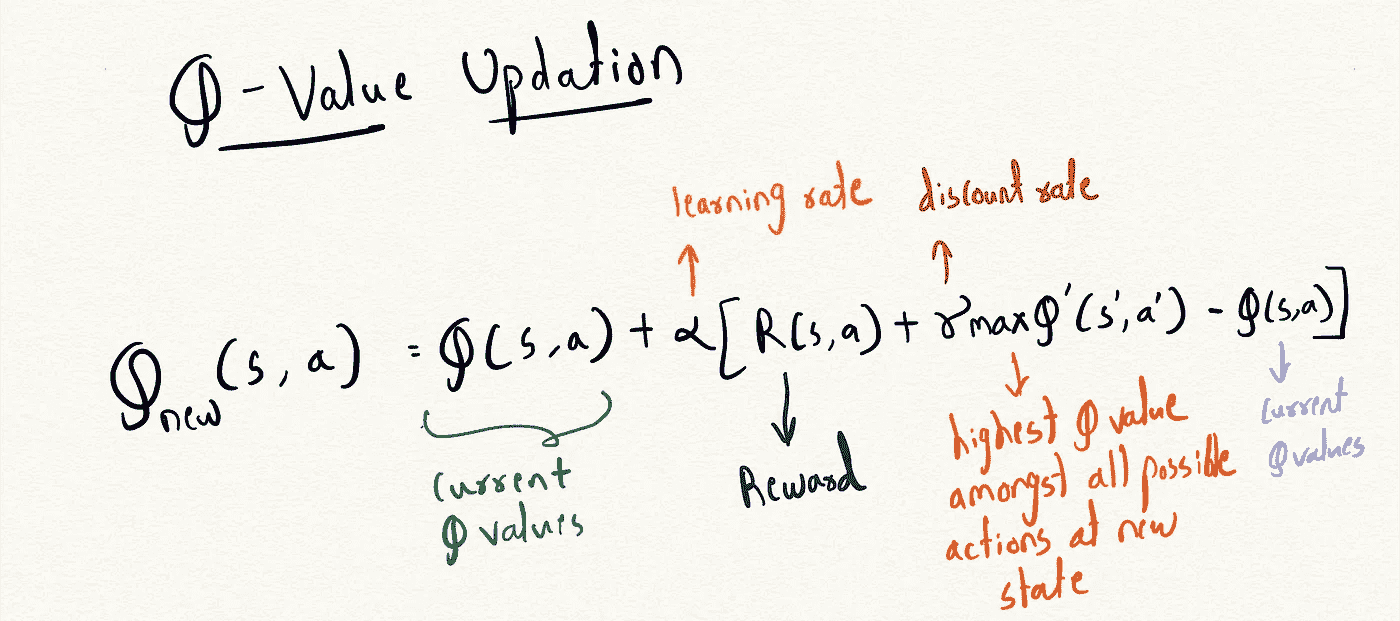 Q-Value Updation
learning rate discount rate
Q new (s, a) = Q(s, a) + α[R(s, a) + γ max Q'(s', a') - Q(s, a)]
current
Q values
Reward
highest Q value
amongst all possible
actions at new
state
current
Q values